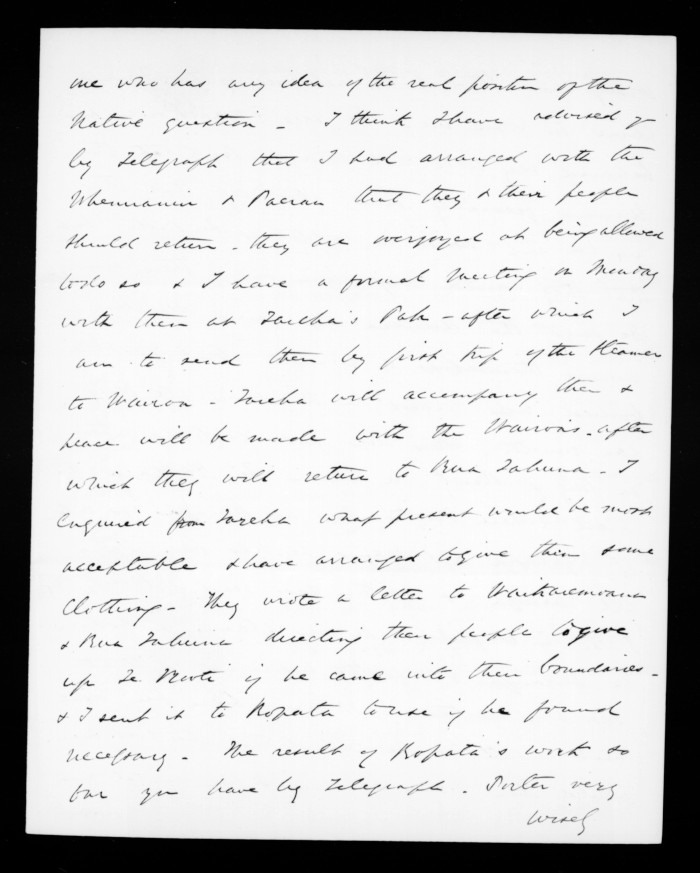 one who has any idea of the real position of the
Native question - I think I have advised y
by Telegraph that I had arranged with the
Whenuanui & Paerau that they & their people
should return - they are overjoyed at being allowed
to do so & I have a formal meeting on Monday
with them at Tareha's Pah - after which I
am to send them by first trip of the Steamer
to Wairoa - Tareha will accompany them &
peace will be made with the Wairoas - after
which they will return to Rua Tahuna - I
Enquired from Tareha what present would be most
acceptable & have arranged to give them some
Clothing - They wrote a letter to Waikaremoana
& Rua Tahuna directing their people to give
up Te Kooti if he came into their boundaries -
& I sent it to Ropata to use if he found
necessary - The result of Ropata's work so
far you have by Telegraph. Porter very
wisely